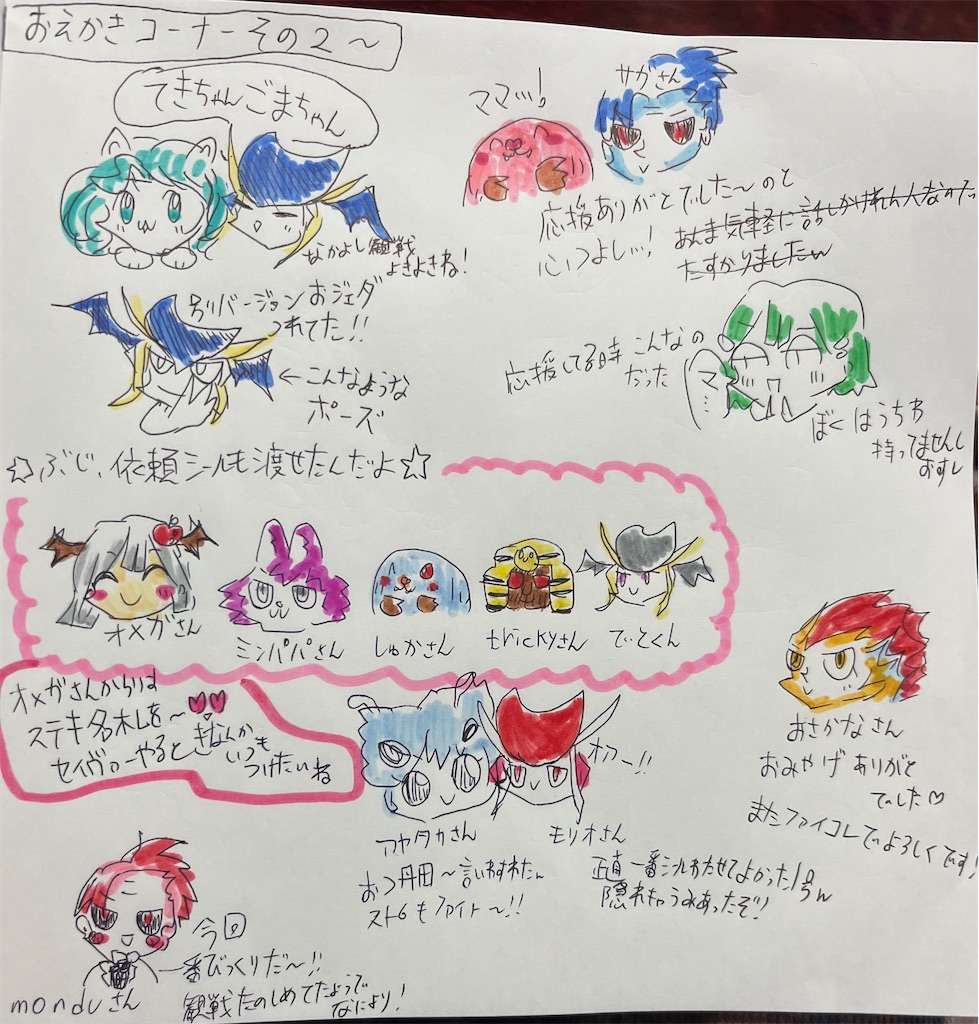 おえかきコーナーその2～
てきちゃんごまちゃん
なかよし観戦
よきよきね!
ママ…!
サガさん
応援ありがとでした～のと
心つよし…!
あんま気軽に話しかけれん人なのでっ
たすかりましたん
別バージョンおジェダ
つれてた!!
←こんなような
ポーズ
応援してる時こんなの
だった
マ…
ぼくはうちわ
持ってませんし
おすし
☆ぶじ、依頼シールも渡せたんだよ☆
オメガさん
ミンパパさん
しゅかさん
trickyさん
でぃとくん
オメガさんからは
ステキ名札を～
セイヴァーやるとき
なんか
いつも
つけたいね
オワー!!
アヤタカさん
モリオさん
おつ丹田～言いわすれたん
スト6もファイト～!!
正直一番シールわたせてよかった1号ん
隠れちゃうみあったぞ!
おさかなさん
おみやげありがと
でした♡
またファイコレでよろしくです!
今回
一番びっくりだ～!!
観戦たのしめてたようで
なにより!
monduさん